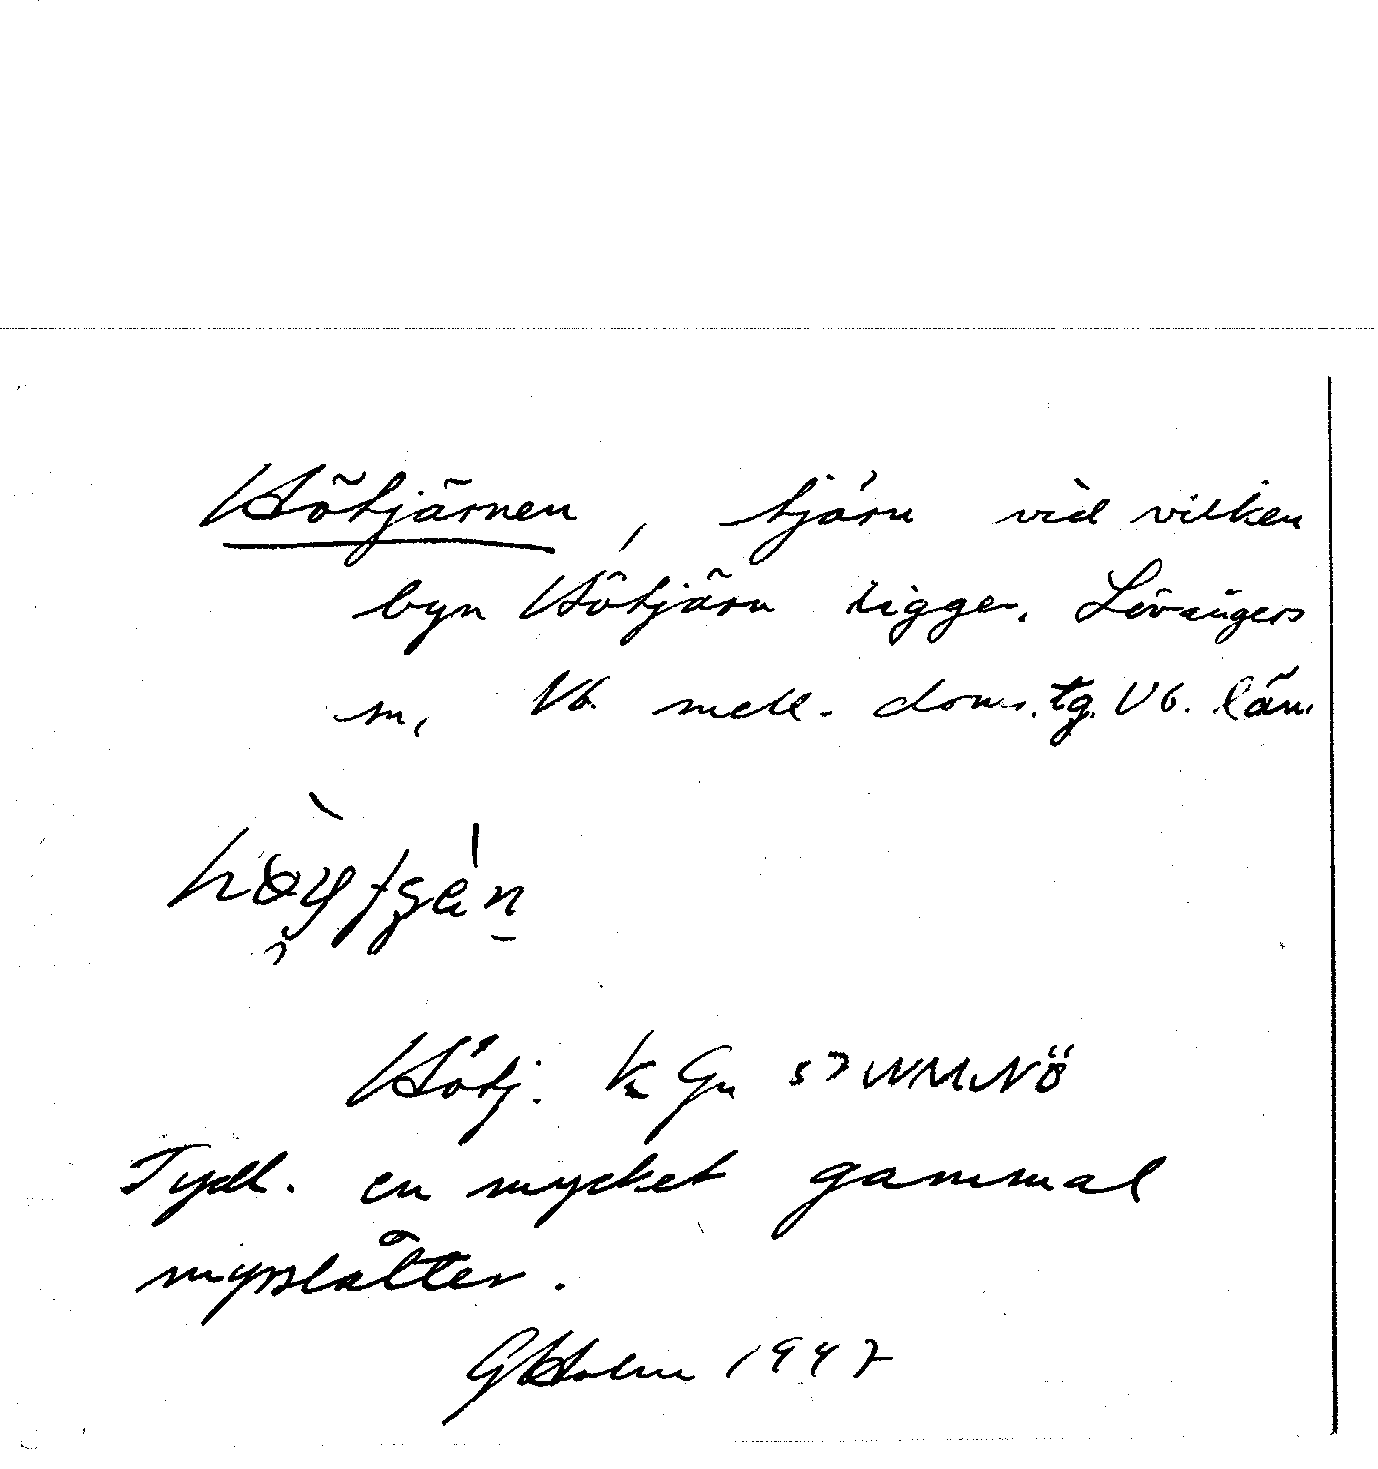 Hötjärnen, tjärn vid vilken
byn Hötjärn ligger. Lövångers
sn, Vb. mell. doms.tg. Vb. län.
Hötj. Ka Gn 57 NNÖ
Tydl. en mycket gammal
myrslåtter.
GHolm 1947